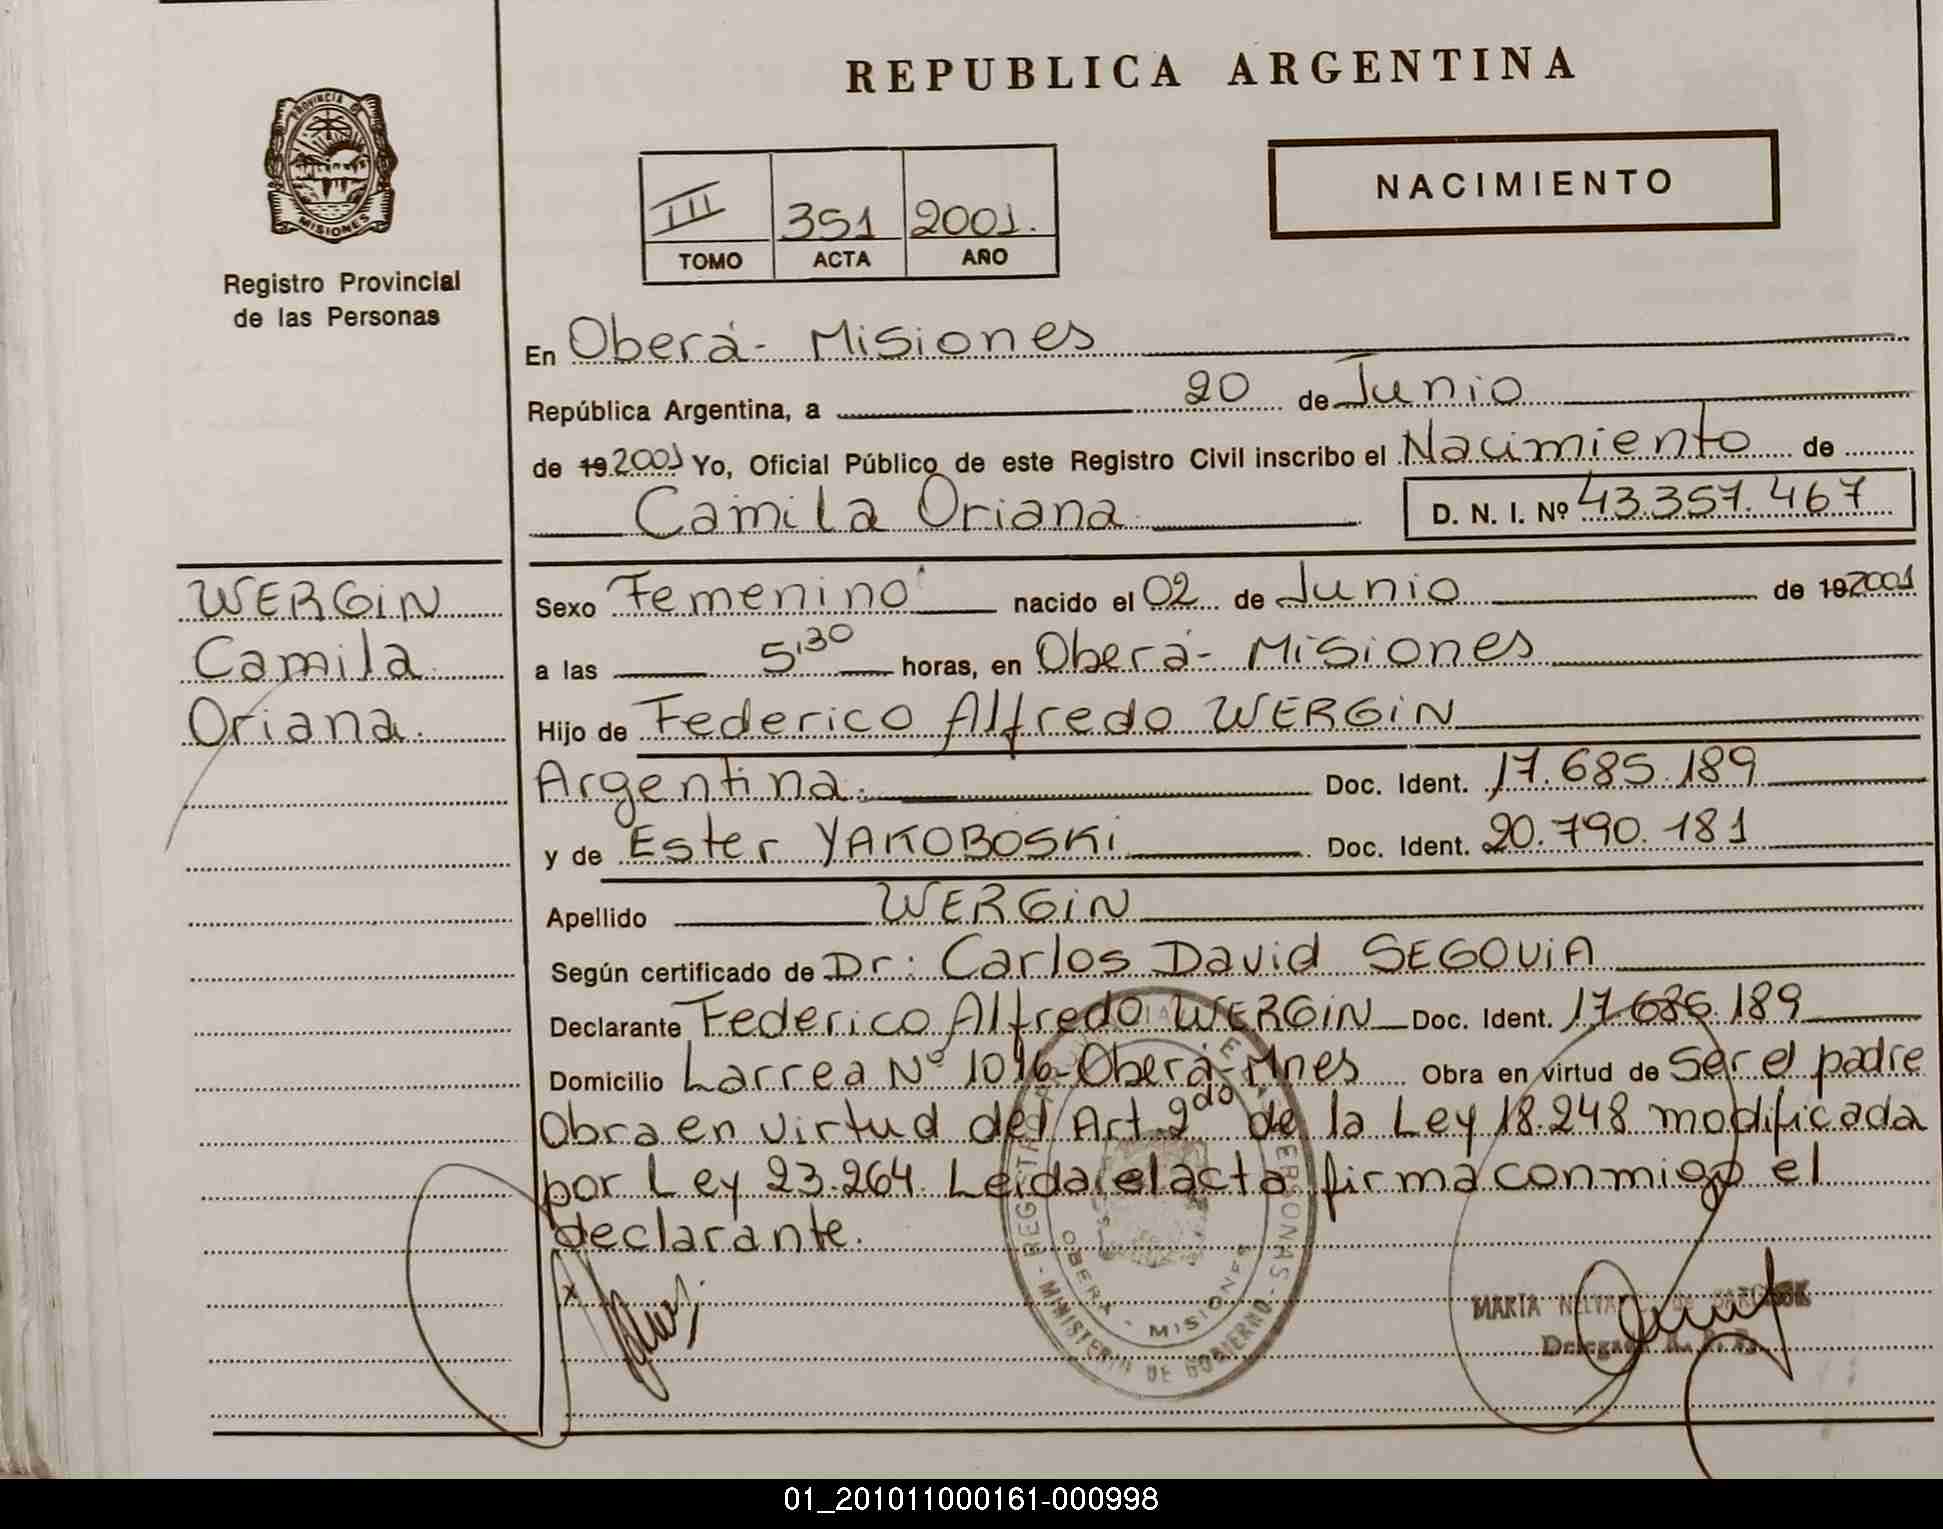 REPUBLICA ARGENTINA
PROVINCIA DE
MISIONES
Registro Provincial
de las Personas
NACIMIENTO
III 351 2001.
TOMO ACTA AÑO
En Oberá - Misiones
República Argentina, a 20 de Junio
de 19 2001 Yo, Oficial Público de este Registro Civil inscribo el Nacimiento de
Camila Oriana D. N. I. Nº 43.357.467
WERGIN
Camila
Oriana.
Sexo Femenino nacido el 02 de Junio de 19 2001
a las 5,30 horas, en Oberá - Misiones
Hijo de Federico Alfredo WERGIN
Argentina. Doc. Ident. 17.685.189
y de Ester YAKOBOSKi Doc. Ident. 20.790.181
Apellido WERGIN
Según certificado de Dr: Carlos David SEGOViA
Declarante Federico Alfredo WERGIN Doc. Ident. 17.685.189
Domicilio Larrea Nº 1016 - Oberá - Mnes Obra en virtud de Ser el padre
Obra en virtud del Art. 2do de la Ley 18.248 modificada
por Ley 23.264. Leida el acta firma conmigo el
declarante.
OBERA - MISIONES
MINISTERIO DE GOBIERNO
MARIA
01_201011000161-000998